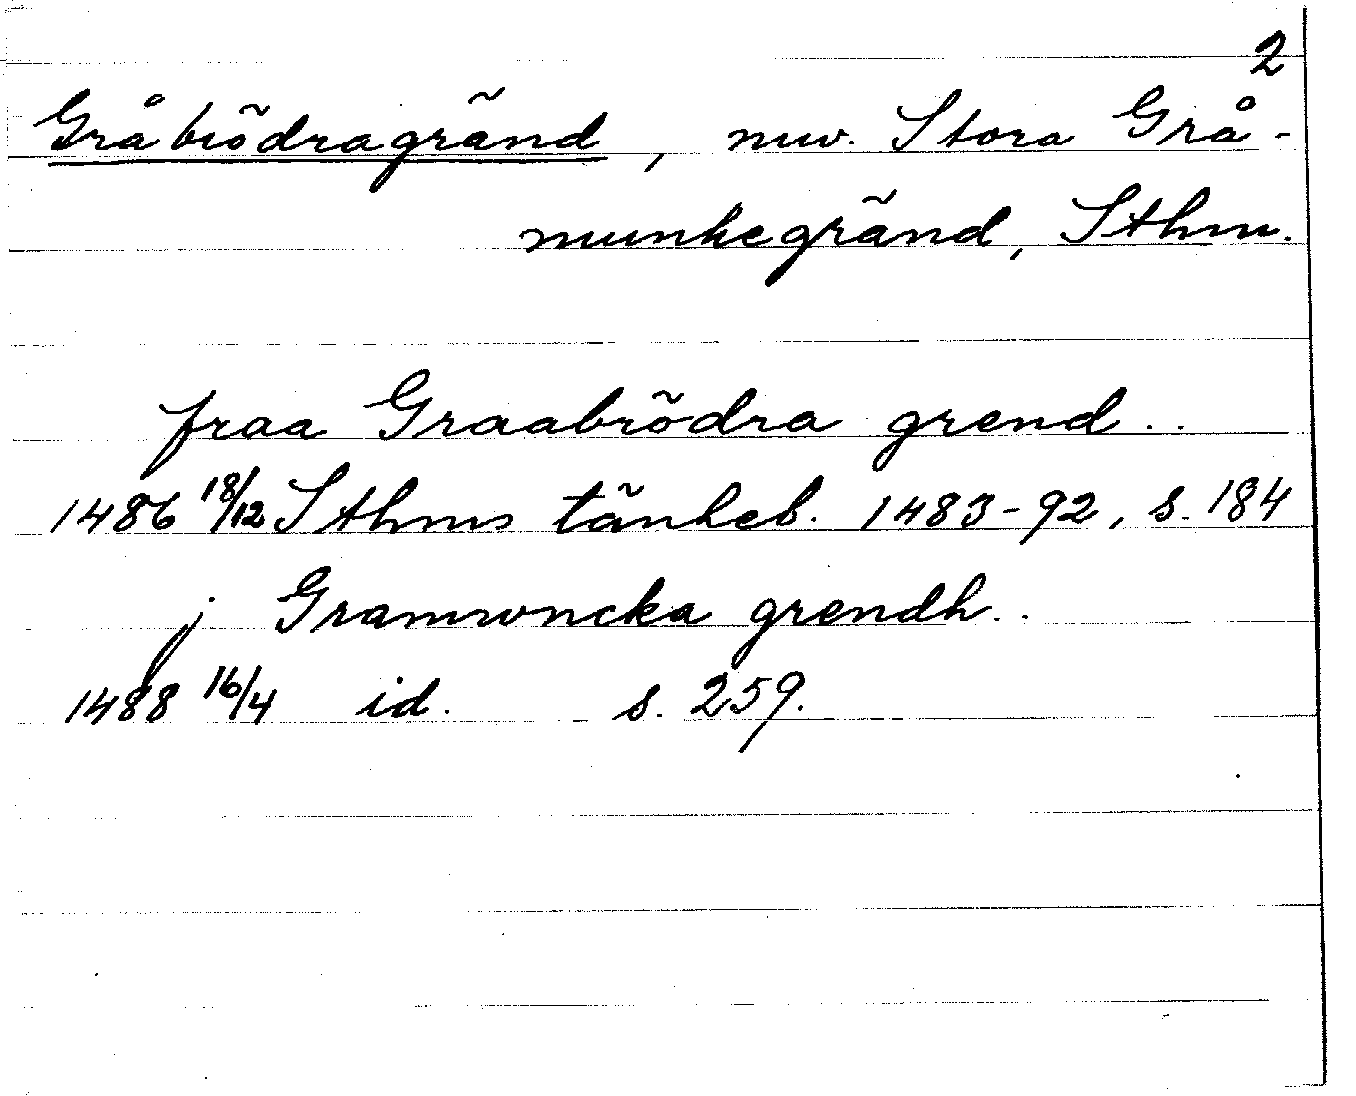 2
Gråbrödragränd, nuv. Stora Grå-
munkegränd, Sthm.
fraa Graabrödra grend..
1486 18/12 Sthms tänkeb. 1483-92, s. 184
j Gramwncka grendh..
1488 16/4 id. s. 259.